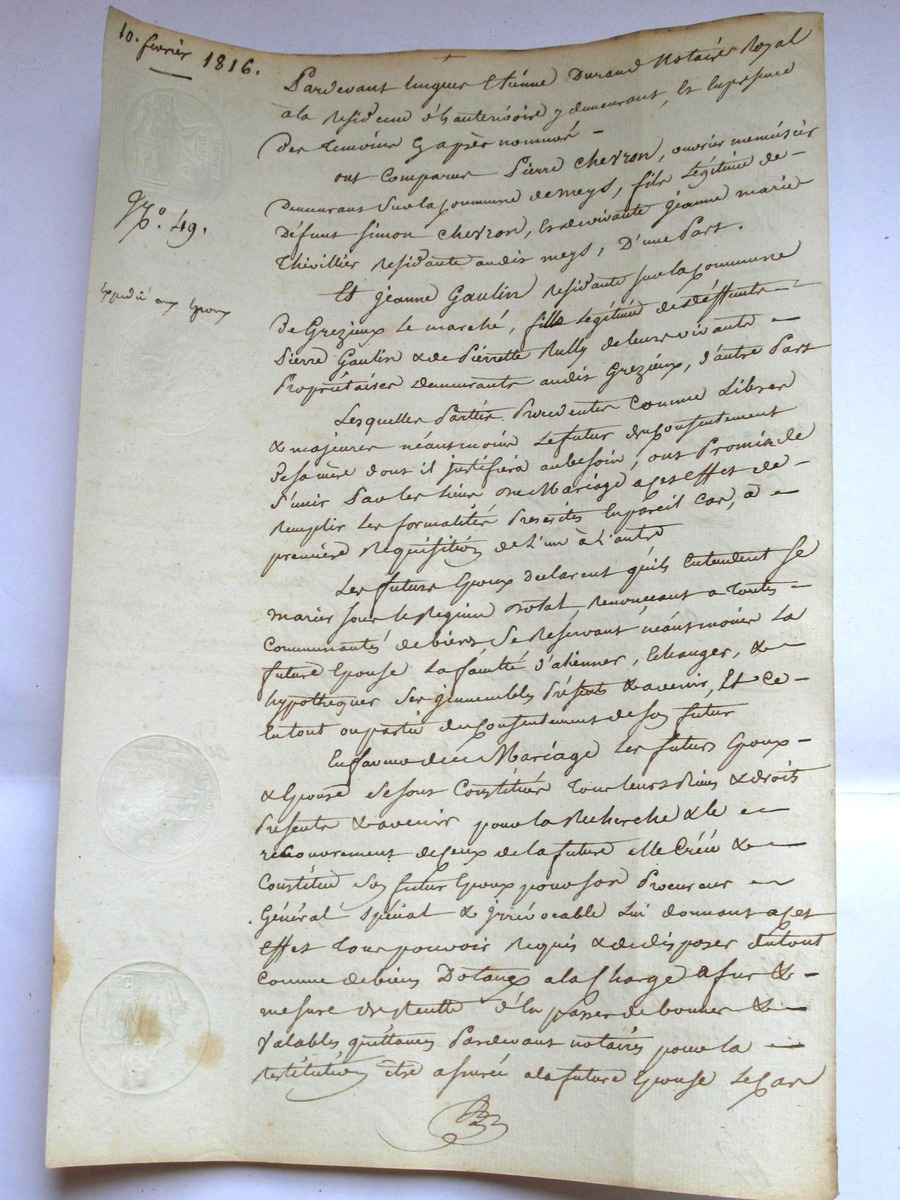 10. fevrier 1816.
N.º 49.
Expedié aux Epoux
Pardevant Me Etienne Durand Notaire Royal
à la residence d'hauterivoire y demeurant, Et En presence
Des temoins Cy après nommés —
ont Comparus Pierre Chevron, ouvrier menuisier
Demeurant Sur la Commune de meys, fils Légitime de —
Défunt Simon Chevron, & de vivante jeanne marie
Thivillier residante audit meys, D'une Part.
Et jeanne Gaulin residante sur la Commune
De Grezieux Le marché, fille Légitime des deffunts —
Pierre Gaulin & de Pierrette Rully de leurs vivants —
Propriétaires demeurants audit Grezieux, d'autre Part
Lesquelles Parties Procedentes Comme Libres
& majeures néantmoins Le futur du Consentement
De sa mère dont il justifiera au besoin, ont Promis de
S'unir Par les Liens du Mariage a Cet effet de —
Remplir les formalités Prescrites En pareil Cas, à —
première Requisition de L'un à L'autre
Les future Epoux declarent qu'ils Entendent se
marier sous le Regime Dotal, Renonceant a Toutes —
Communautés de biens, Se Réservant néantmoins La
future Epouse La faculté d'aliénner, Echanger, & —
hypothequer Ses jmmeubles Présents & avenir, Et Ce —
En tout ou partie du Consentement de Son futur
En faveur de Ce Mariage Les futurs Epoux —
& Epouse Se sont Constitués Tous leurs Biens & droits
Présents & avenir pour la Recherche & le —
recouvrement de Ceux de la future elle Créé & —
Constitue Son futur Epoux pour son Procureur —
Général Spécial & jrrévocable Lui donnant a Cet
Effet Tous pouvoirs Requis & de disposer du tout
Comme de biens Dotaux a la Charge a fur & —
mesure de Recette d'En passer de bonnes & —
Valables quittances Pardevant notaires pour la —
restitution être assurée a la future Epouse Le Cas